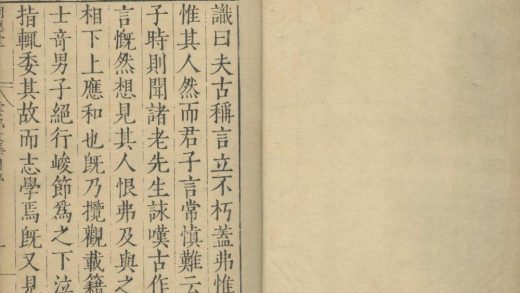 識曰夫古稱言立不朽蓋弗惟
惟其人然而君子言常慎難云
子時則聞諸老先生詠嘆古作
言慨然想見其人恨弗及與之
相下上應和也既乃攬觀載籍
士奇男子絕行峻節為之下泣
指輒委其故而志學焉既又見